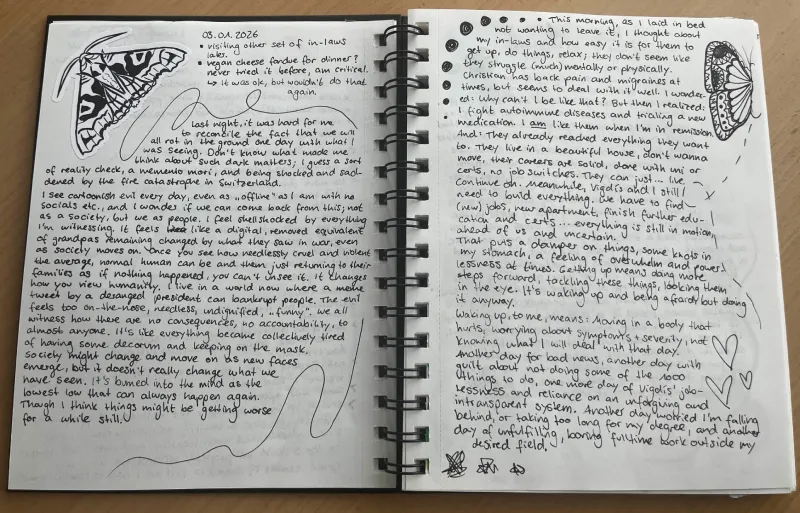 03.01.2026
• visiting other set of in-laws
later.
• vegan cheese fondue for dinner?
never tried it before, am critical.
↳ It was ok, but wouldn't do that
again.
Last night, it was hard for me
to reconcile the fact that we will
all rot in the ground one day with what I
was seeing. Don't know what made me
think about such dark matters; I guess a sort
of reality check, a memento mori, and being shocked and sad-
dened by the fire catastrophe in Switzerland.
I see cartoonish evil every day, even as "offline" as I am with no
socials etc., and I wonder if we can come back from this; not
as a society, but we as people. I feel shellshocked by everything
I'm witnessing. It feels like a digital, removed equivalent
of grandpas remaining changed by what they saw in war, even
as society moves on. Once you see how needlessly cruel and violent
the average, normal human can be and them just returning to their
families as if nothing happened, you can't unsee it. It changes
how you view humanity. I live in a world now where a meme
tweet by a deranged president can bankrupt people. The evil
feels too on-the-nose, needless, undignified, "funny". We all
witness how there are no consequences, no accountability, to
almost anyone. It's like everything became collectively tired
of having some decorum and keeping on the mask.
Society might change and move on as new faces
emerge, but it doesn't really change what we
have seen. It's burned into the mind as the
lowest low that can always happen again.
Though I think things might be getting worse
for a while still.
This morning, as I laid in bed
not wanting to leave it, I thought about
my in-laws and how easy it is for them to
get up, do things, relax; they don't seem like
they struggle (much) mentally or physically.
Christian has back pain and migraines at
times, but seems to deal with it well. I wonder-
ed: Why can't I be like that? But then I realized:
I fight autoimmune diseases and trialing a new
medication. I am like them when I'm in remission.
And: They already reached everything they want
to. They live in a beautiful house, don't wanna
move, their careers are solid, done with uni or
certs, no job switches. They can just... live.
Continue on. Meanwhile, Vigdis and I still
need to build everything. We have to find
(new) jobs, new apartment, finish further edu-
cation and certs... everything is still in motion,
ahead of us and uncertain.
That puts a damper on things, some knots in
my stomach, a feeling of overwhelm and power-
lessness at times. Getting up means doing more
steps forward, tackling these things, looking them
in the eye. It's waking up and being afraid but doing
it anyway.
Waking up, to me, means: Moving in a body that
hurts, worrying about symptoms + severity, not
knowing what I will deal with that day.
Another day for bad news, another day with
guilt about not doing some of the 1000
things to do, one more day of Vigdis' job-
lessness and reliance on an unforgiving and
intransparent system. Another day worried I'm falling
behind, or taking too long for my degree, and another
day of unfulfilling, boring fulltime work outside my
desired field.